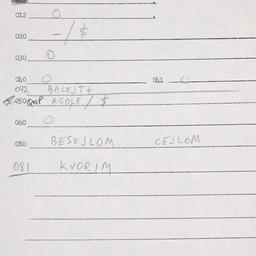 012 O
020 - / $
030 O
040 O 042 O
042 BALEJT+
050 AGOLE / $
060 O
080 BESEJLOM CEJLOM
081 KVORIM